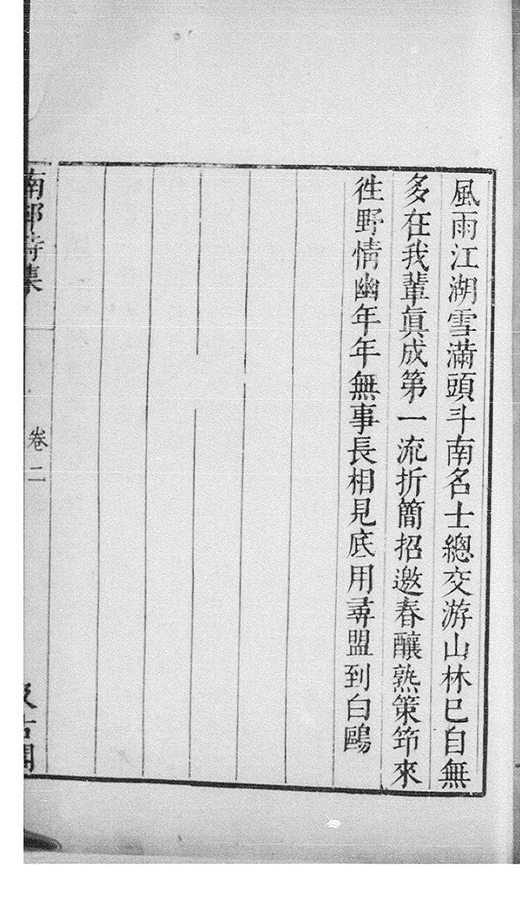 風雨江湖雪滿頭斗南名士總交游山林已自無
多在我輩眞成第一流折簡招邀春釀熟策笻來
徃野情幽年年無事長相見底用尋盟到白鷗
南邨詩集
卷二
汲古閣